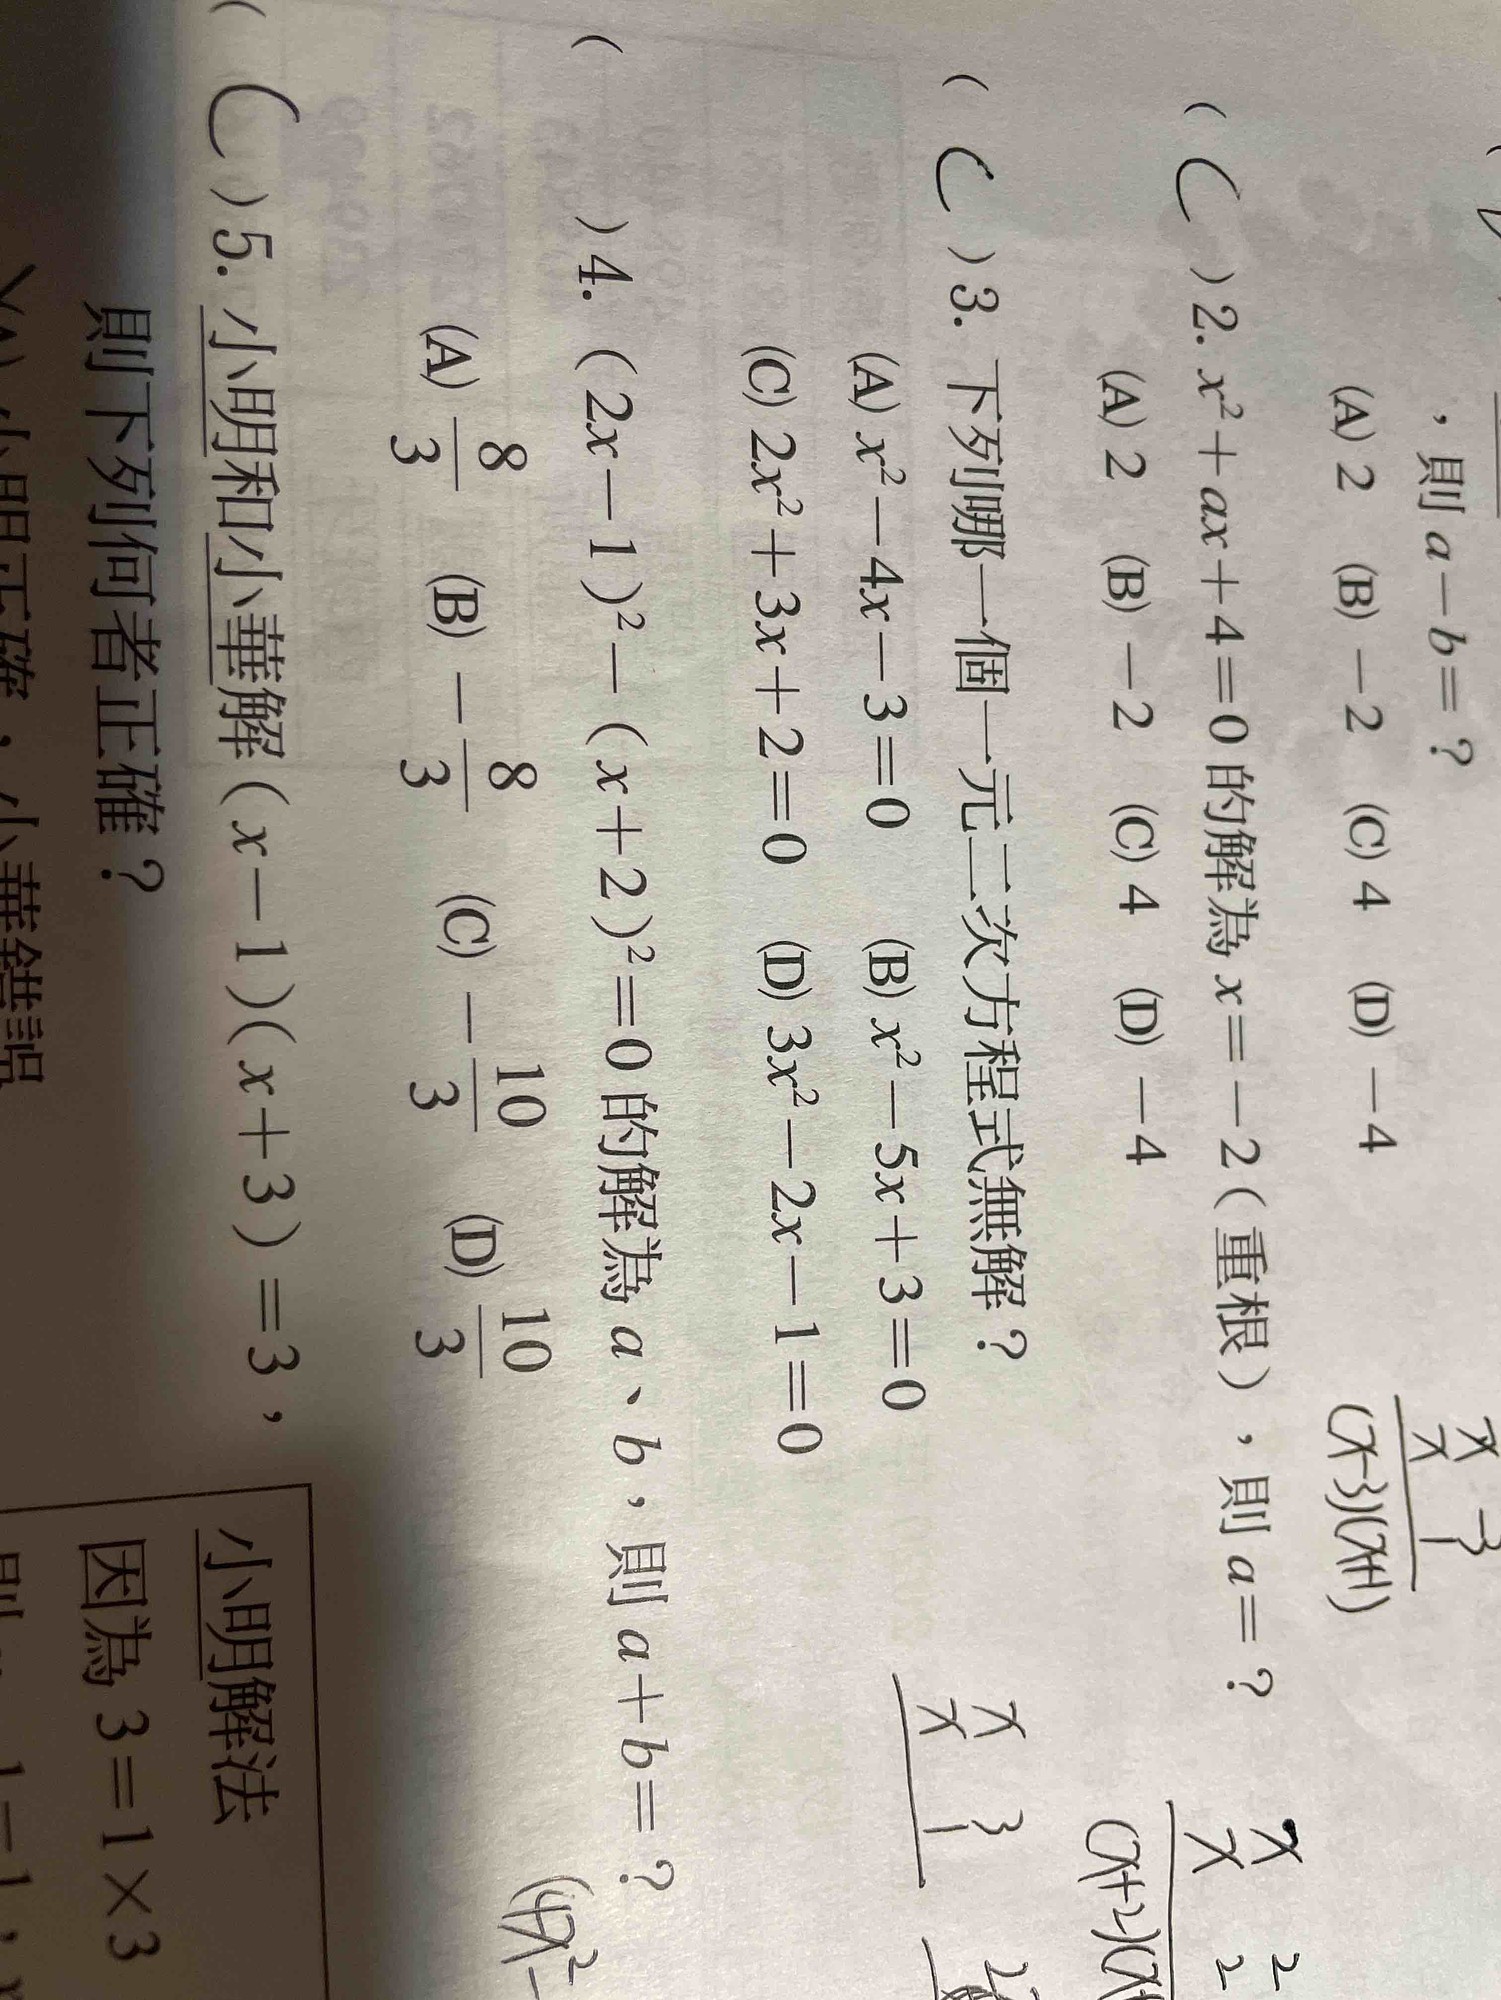 ，則 a－b＝？
(A) 2 (B) －2 (C) 4 (D) －4
x －3
x 1
(x-3)(x+1)
( C ) 2. x²＋ax＋4＝0 的解為 x＝－2（重根），則 a＝？
(A) 2 (B) －2 (C) 4 (D) －4
x 2
x 2
(x+2)(x+
( C ) 3. 下列哪一個一元二次方程式無解？
(A) x²－4x－3＝0 (B) x²－5x＋3＝0
(C) 2x²＋3x＋2＝0 (D) 3x²－2x－1＝0
x 3
x 1
( ) 4.（2x－1）²－（x＋2）²＝0 的解為 a、b，則 a＋b＝？
(A) 8/3 (B) －8/3 (C) －10/3 (D) 10/3
(4x²-
( C ) 5. 小明和小華解（x－1）（x＋3）＝3，
則下列何者正確？
小明解法
因為 3＝1×3